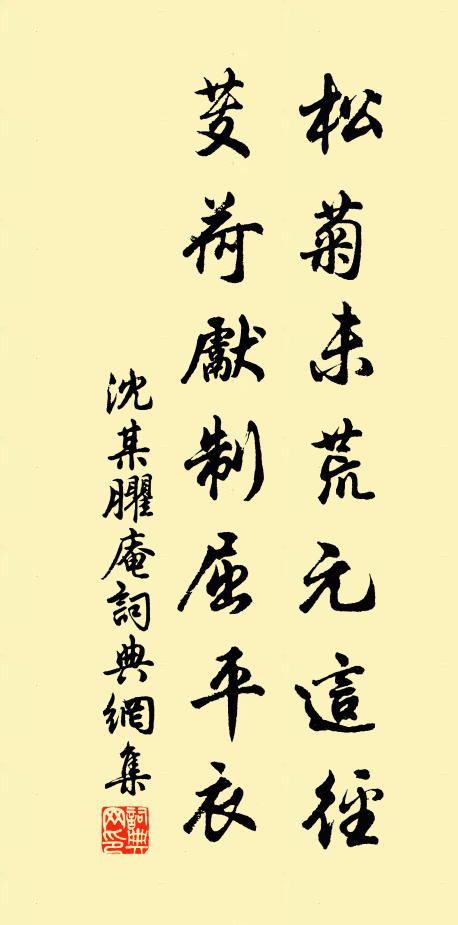 松菊未荒元這徑
芰荷獻制屈平衣
沈某臞庵詞典網集
詞典網印